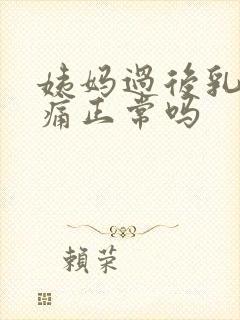 姨妈過後乳
痛正常吗
賴荣